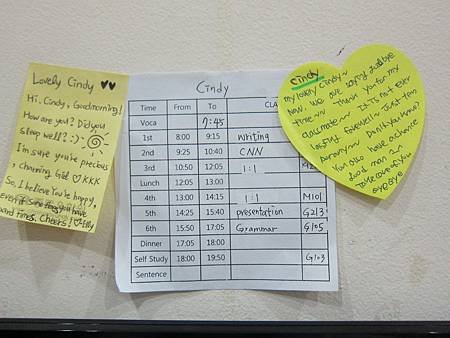 Lovely Cindy ♥♥
Hi, Cindy, Goodmorning!
How are you? Did you
sleep well? :)
I'm sure you're precious
, charming Girl ♡ KKK
So, I believe You're happy,
even if sometimes you have
hard times. Cheers!
Cindy
Time From To CLA
Voca 7:45
1st 8:00 9:15 writing
2nd 9:25 10:40 CNN
3rd 10:50 12:05 1:1
Lunch 12:05 13:00
4th 13:00 14:15 1:1 M101
5th 14:25 15:40 presentation G213
6th 15:50 17:05 Grammar G105
Dinner 17:05 18:00
Self Study 18:00 19:50 G103
Sentence
Cindy
my lovely Cindy~
Now, we are saying goodbye
time~ Thank you for my
classmate~ It is not ever
lasting farewell. Just
Don't you know?
You also have a chance
good man~
take care of you
bye bye